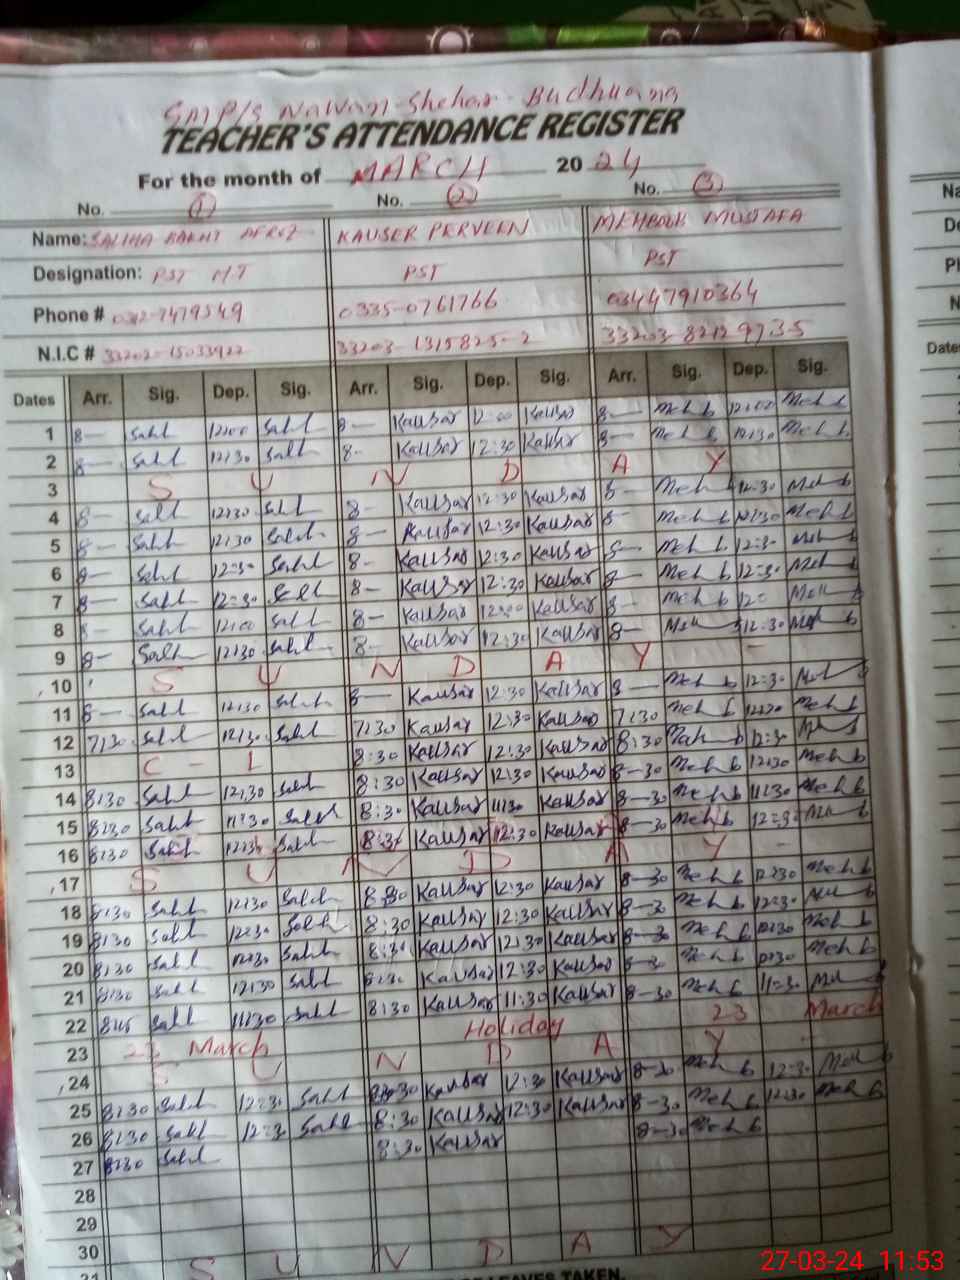 GMP/S Nawan-Shehar-Budhuana
TEACHER'S ATTENDANCE REGISTER
For the month of MARCH 2024
No. 1 No. 2 No. 3
Name: SALIHA BAKHT AFROZ KAUSER PERVEEN MEHBOOB MUSTAFA
Designation: PST M.T PST PST
Phone # 0312-7479549 0335-0761766 03447910364
N.I.C # 33202-15033922 33203-1315825-2
Dates Arr. Sig. Dep. Sig. Arr. Sig. Dep. Sig. Arr. Sig. Dep. Sig.
1 8— Sall 12:00 Sall 8— Kausar 12:00 Kausar 8— Meh b 12:00 Meh b
2 8— Sall 12:30 Sall 8- Kausar 12:30 Kausar 8— Meh b 12:30 Meh b
3 S U N D A Y
4 8— Sall 12:30 Sall 8- Kausar 12:30 Kausar 8- Meh b 12:30 Meh b
5 8— Sall 12:30 Sall 8— Kausar 12:30 Kausar 8- Meh b 12:30 Meh b
6 8— Sall 12:30 Sall 8- Kausar 12:30 Kausar 8— Meh b 12:30 Meh b
7 8— Sall 12:30 Sall 8— Kausar 12:30 Kausar 8— Meh b 12:30 Meh b
8 8— Sall 12:00 Sall 8— Kausar 12:00 Kausar 8— Meh b Meh b
9 8— Sall 12:30 Sall 8— Kausar 12:30 Kausar 8— Meh b 12:30 Meh b
10 S U N D A Y
11 8— Sall 12:30 Sall 8— Kausar 12:30 Kausar 8— Meh b 12:30 Meh b
12 7:30 Sall 12:30 Sall 7:30 Kausar 12:30 Kausar 7:30 Meh b 12:30 Meh b
13 C - L 8:30 Kausar 12:30 Kausar 8:30 Meh b 12:30 Meh b
14 8:30 Sall 12:30 Sall 8:30 Kausar 12:30 Kausar 8-30 Meh b 12:30 Meh b
15 8:30 Sall 11:30 Sall 8:30 Kausar 11:30 Kausar 8-30 Meh b 11:30 Meh b
16 8:30 Sall 12:30 Sall 8:30 Kausar 12:30 Kausar 8-30 Meh b 12:30 Meh b
17 S U N D A Y
18 8:30 Sall 12:30 Sall 8:30 Kausar 12:30 Kausar 8-30 Meh b 12:30 Meh b
19 8:30 Sall 12:30 Sall 8:30 Kausar 12:30 Kausar 8-30 Meh b 12:30 Meh b
20 8:30 Sall 12:30 Sall 8:30 Kausar 12:30 Kausar 8-30 Meh b 12:30 Meh b
21 8:30 Sall 12:30 Sall 8:30 Kausar 12:30 Kausar 8-30 Meh b Meh b
22 8:45 Sall 11:30 Sall 8:30 Kausar 11:30 Kausar 8-30 Meh b 11:30 Meh b
23 23 March Holiday 23 March
24 S U N D A Y
25 8:30 Sall 12:30 Sall 8:30 Kausar 12:30 Kausar 8-30 Meh b 12:30 Meh b
26 8:30 Sall 12:30 Sall 8:30 Kausar 12:30 Kausar 8-30 Meh b 12:30 Meh b
27 8:30 Sall 8:30 Kausar 8-30 Meh b
28
29
30
31 S U N D A Y
LEAVES TAKEN.
Dates
27-03-24 11:53